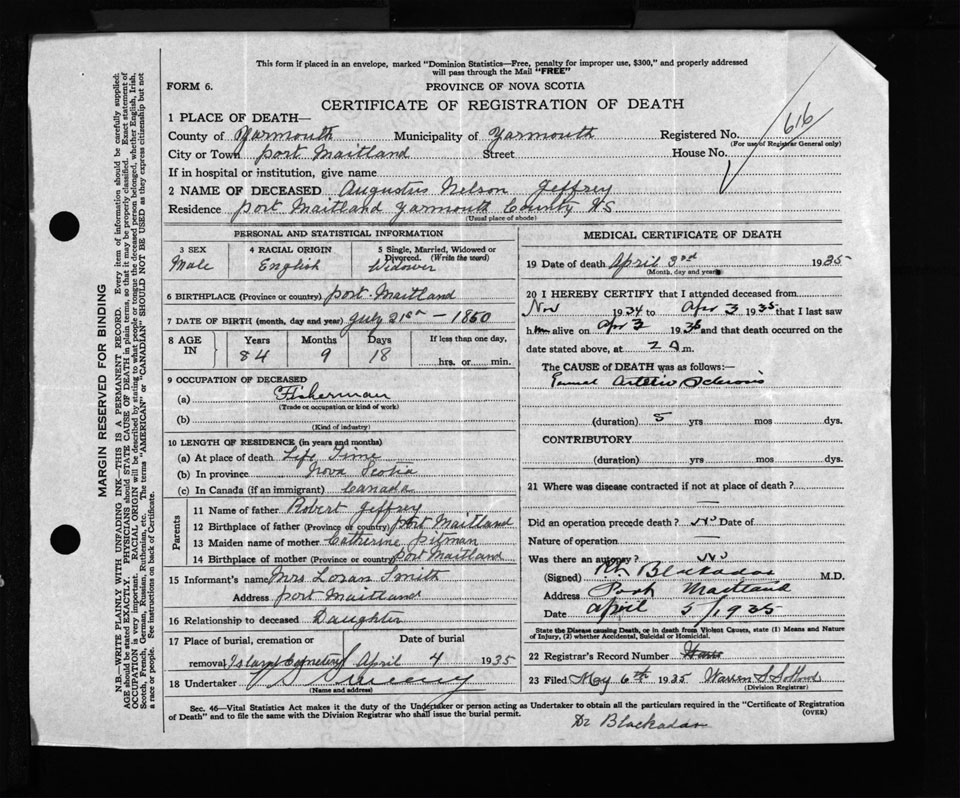 This form if placed in an envelope, marked "Dominion Statistics—Free, penalty for improper use, $300," and properly addressed
will pass through the Mail "FREE"
FORM 6.
PROVINCE OF NOVA SCOTIA
CERTIFICATE OF REGISTRATION OF DEATH
1 PLACE OF DEATH—
County of Yarmouth Municipality of Yarmouth Registered No. 616
(For use of Registrar General only)
City or Town Port Maitland Street House No.
If in hospital or institution, give name
2 NAME OF DECEASED Augustus Nelson Jeffrey
Residence Port Maitland Yarmouth County NS
(Usual place of abode)
PERSONAL AND STATISTICAL INFORMATION
3 SEX 4 RACIAL ORIGIN 5 Single, Married, Widowed or Divorced. (Write the word)
Male English Widower
6 BIRTHPLACE (Province or country) Port Maitland
7 DATE OF BIRTH (month, day and year) July 21st – 1850
8 AGE IN Years Months Days If less than one day,
84 9 18 hrs. or min.
9 OCCUPATION OF DECEASED
(a) Fisherman
(Trade or occupation or kind of work)
(b)
(Kind of industry)
10 LENGTH OF RESIDENCE (in years and months)
(a) At place of death Life Time
(b) In province Nova Scotia
(c) In Canada (if an immigrant) Canada
Parents
11 Name of father Robert Jeffrey
12 Birthplace of father (Province or country) Port Maitland
13 Maiden name of mother Catherine Pitman
14 Birthplace of mother (Province or country) Port Maitland
15 Informant's name Mrs Loran Smith
Address Port Maitland
16 Relationship to deceased Daughter
17 Place of burial, cremation or removal Date of burial
Island Cemetery April 4 1935
18 Undertaker
(Name and address)
MEDICAL CERTIFICATE OF DEATH
19 Date of death April 3rd 1935
(Month, day and year)
20 I HEREBY CERTIFY that I attended deceased from
Nov 1934 to Apr 3 1935 that I last saw
him alive on Apr 3 1935 and that death occurred on the
date stated above, at 2 A m.
The CAUSE OF DEATH was as follows:—
Arterio Sclerosis
(duration) 5 yrs mos dys.
CONTRIBUTORY
(duration) yrs mos dys.
21 Where was disease contracted if not at place of death?
Did an operation precede death? No Date of
Nature of operation
Was there an autopsy? No
(Signed) Blackadar M.D.
Address Port Maitland
Date April 5/1935
State the Disease causing Death, or in death from Violent Causes, state (1) Means and Nature
of Injury, (2) whether Accidental, Suicidal or Homicidal.
22 Registrar's Record Number
23 Filed May 6th 1935 Warren S
(Division Registrar)
Sec. 46—Vital Statistics Act makes it the duty of the Undertaker or person acting as Undertaker to obtain all the particulars required in the "Certificate of Registration
of Death" and to file the same with the Division Registrar who shall issue the burial permit. (OVER)
Dr Blackadar
MARGIN RESERVED FOR BINDING
N.B.—WRITE PLAINLY WITH UNFADING INK—THIS IS A PERMANENT RECORD. Every item of information should be carefully supplied;
AGE should be stated EXACTLY. PHYSICIANS should STATE CAUSE OF DEATH in plain terms, so that it may be properly classified. Exact statement of
OCCUPATION is very important. RACIAL ORIGIN will be described by stating to what people or tongue the deceased person belonged, whether English, Irish,
Scotch, French, German, Russian, Ruthenian, etc. The terms "AMERICAN" or "CANADIAN" SHOULD NOT BE USED as they express citizenship but not
a race or people. See instructions on back of Certificate.